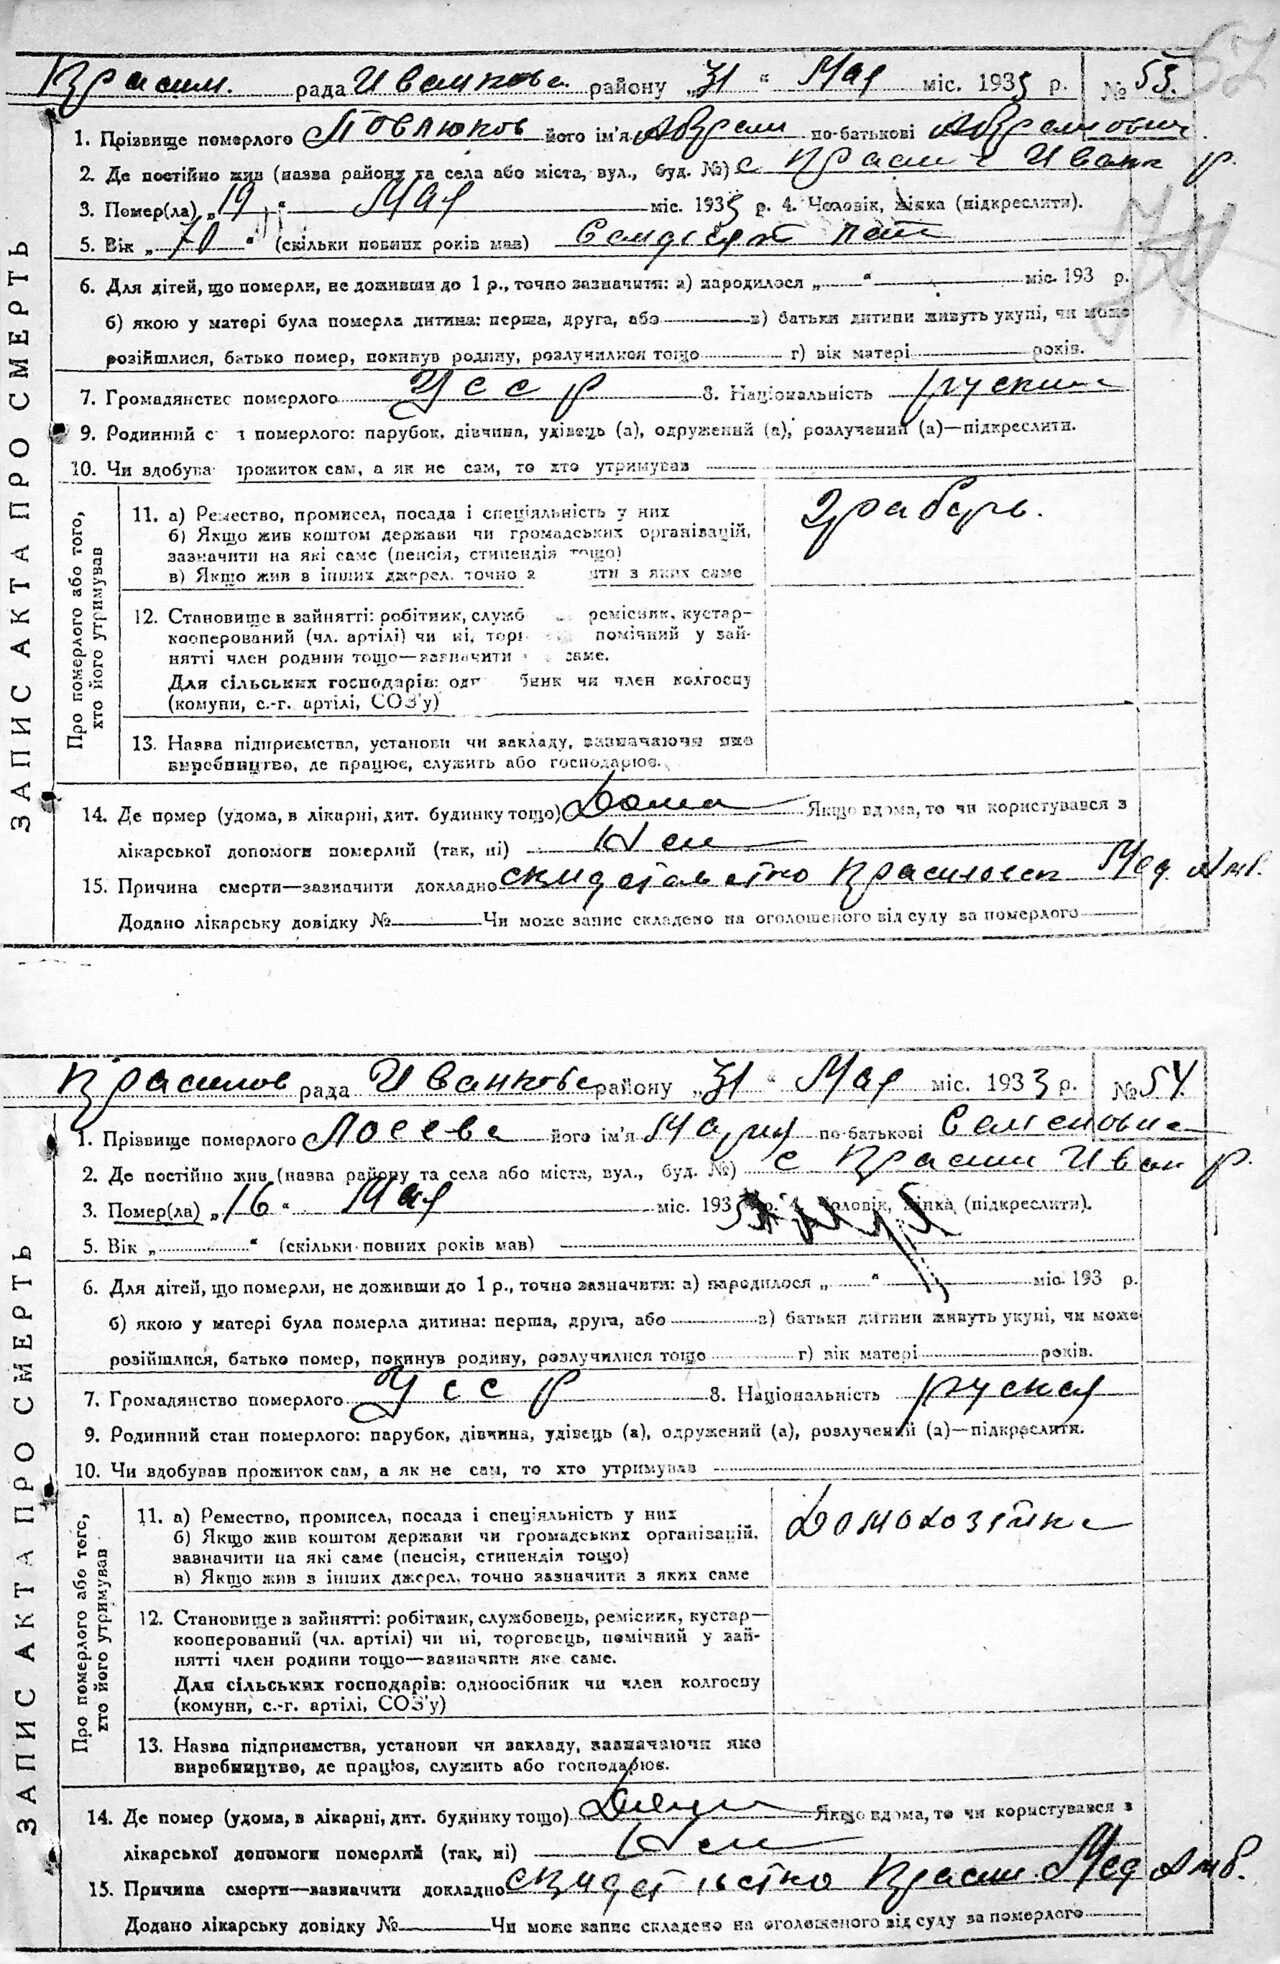 62
ЗАПИС АКТА ПРО СМЕРТЬ
Красил. рада Иванкова району „31“ Мая міс. 1933 р. № 53.
1. Прізвище померлого Повлюков його ім'я Абрам по-батькові Абрамович
2. Де постійно жив (назва району та села або міста, вул., буд. №) с Красил Иванк р.
3. Помер(ла) „19“ Мая міс. 1933 р. 4. Чоловік, жінка (підкреслити).
5. Вік „70“ (скільки повних років мав) Семдесят лет
6. Для дітей, що померли, не доживши до 1 р., точно зазначити: а) народилося „ “ міс. 193 р.
б) якою у матері була померла дитина: перша, друга, або в) батьки дитини живуть укупі, чи може
розійшлися, батько помер, покинув родину, розлучилися тощо г) вік матері років.
7. Громадянство померлого УССР 8. Національність руский
9. Родинний с н померлого: парубок, дівчина, удівець (а), одружений (а), розлучений (а)—підкреслити.
10. Чи здобува прожиток сам, а як не сам, то хто утримував
Про померлого або того,
хто його утримував
11. а) Ремество, промисел, посада і спеціяльність у них
Грабарь.
б) Якщо жив коштом держави чи громадських організацій,
зазначити на які саме (пенсія, стипендія тощо)
в) Якщо жив в інших джерел. точно з ити з яких саме
12. Становище в зайнятті: робітник, служб ремісник, кустар-
кооперований (чл. артілі) чи ні, торг помічний у зай-
нятті член родини тощо—зазначити саме.
Для сільських господарів: од бник чи член колгоспу
(комуни, с.-г. артілі, СОЗ'у)
13. Назва підприємства, установи чи закладу, зазначаючи яке
виробництво, де працює, служить або господарює.
14. Де помер (удома, в лікарні, дит. будинку тощо) Дома Якщо вдома, то чи користувався з
лікарської допомоги померлий (так, ні) Нет
15. Причина смерти—зазначити докладно Мед Амб.
Додано лікарську довідку № Чи може запис складено на оголошеного від суду за померлого
ЗАПИС АКТА ПРО СМЕРТЬ
Красилов рада Иванкова району „31“ Мая міс. 1933 р. № 54.
1. Прізвище померлого Лосева його ім'я Мария по-батькові Семеновна
2. Де постійно жив (назва району та села або міста, вул., буд. №) с Красил Иван р.
3. Помер(ла) „16“ Мая міс. 1933 р. 4. Чоловік, жінка (підкреслити).
5. Вік „ “ (скільки повних років мав)
6. Для дітей, що померли, не доживши до 1 р., точно зазначити: а) народилося „ “ міс. 193 р.
б) якою у матері була померла дитина: перша, друга, або в) батьки дитини живуть укупі, чи може
розійшлися, батько помер, покинув родину, розлучилися тощо г) вік матері років.
7. Громадянство померлого УССР 8. Національність руская
9. Родинний стан померлого: парубок, дівчина, удівець (а), одружений (а), розлучений (а)—підкреслити.
10. Чи здобував прожиток сам, а як не сам, то хто утримував
Про померлого або того,
хто його утримував
11. а) Ремество, промисел, посада і спеціяльність у них
Домохозяйка
б) Якщо жив коштом держави чи громадських організацій,
зазначити на які саме (пенсія, стипендія тощо)
в) Якщо жив з інших джерел, точно зазначити з яких саме
12. Становище в зайнятті: робітник, службовець, ремісник, кустар—
кооперований (чл. артілі) чи ні, торговець, помічний у зай-
нятті член родини тощо—зазначити яке саме.
Для сільських господарів: одноосібник чи член колгоспу
(комуни, с.-г. артілі, СОЗ'у)
13. Назва підприємства, установи чи закладу, зазначаючи яке
виробництво, де працює, служить або господарює.
14. Де помер (удома, в лікарні, дит. будинку тощо) Якщо вдома, то чи користувався з
лікарської допомоги померлий (так, ні) Нет
15. Причина смерти—зазначити докладно Красил. Мед Амб.
Додано лікарську довідку № Чи може запис складено на оголошеного від суду за померлого